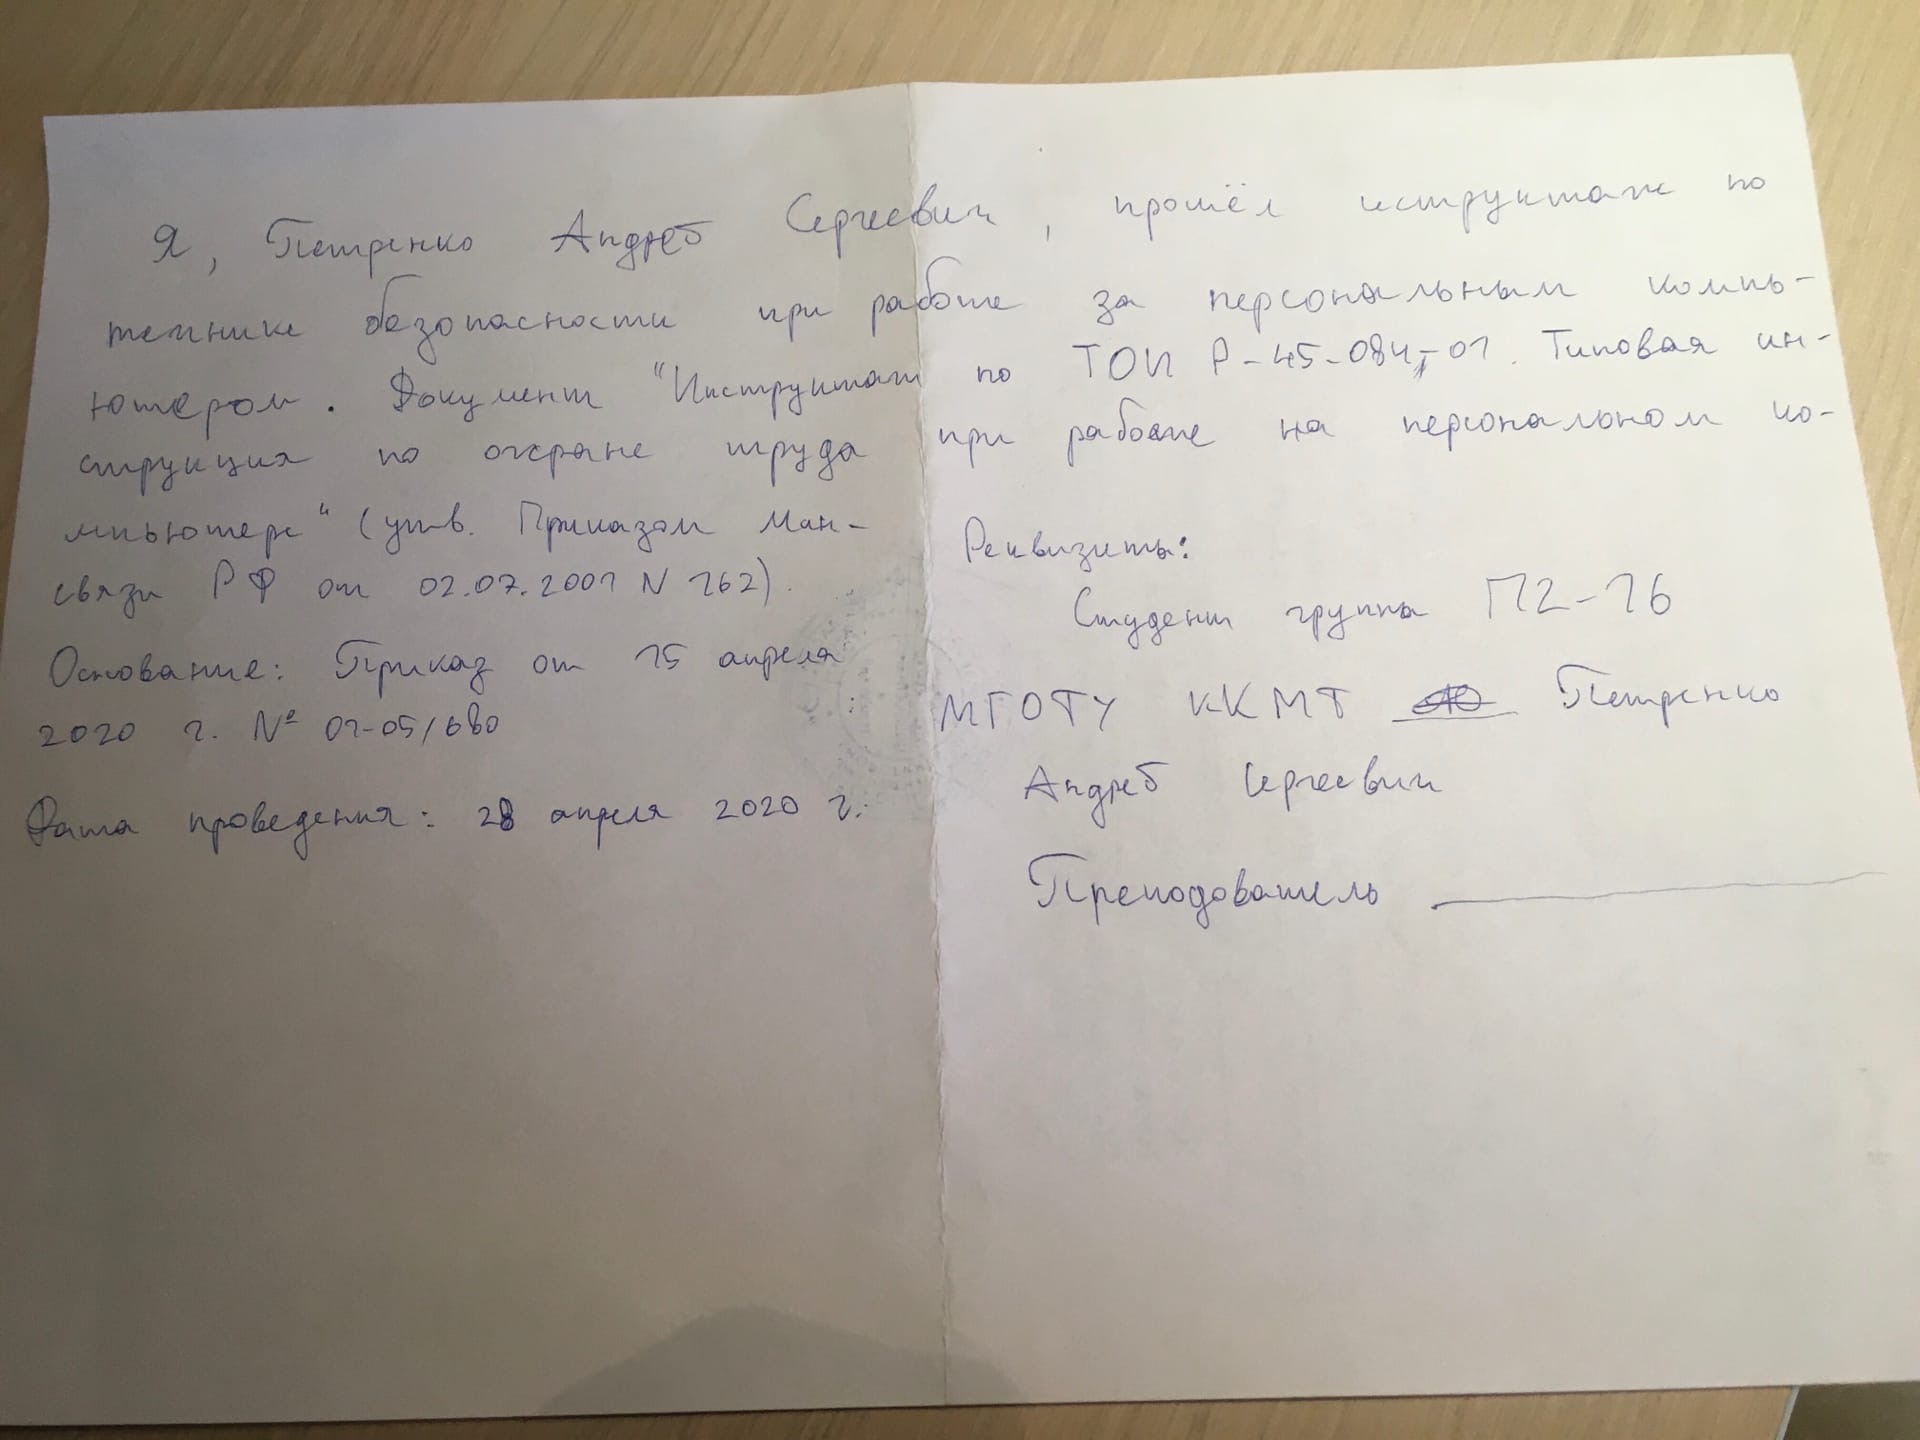 Я, Петренко Андрей Сергеевич, прошёл иструктаж по
технике безопасности при работе за персональным компь-
ютером. Документ "Инструктаж по ТОИ Р-45-084-01. Типовая ин-
струкция по охране труда при работе на персональном ко-
мпьютере" (утв. Приказом Мин-
связи РФ от 02.07.2001 N 162).
Основание: Приказ от 15 апреля
2020 г. № 01-05/680
Дата проведения: 28 апреля 2020 г.
Реквизиты:
Студент группы П2-16
МГОТУ ККМТ Петренко
Андрей Сергеевич
Преподователь